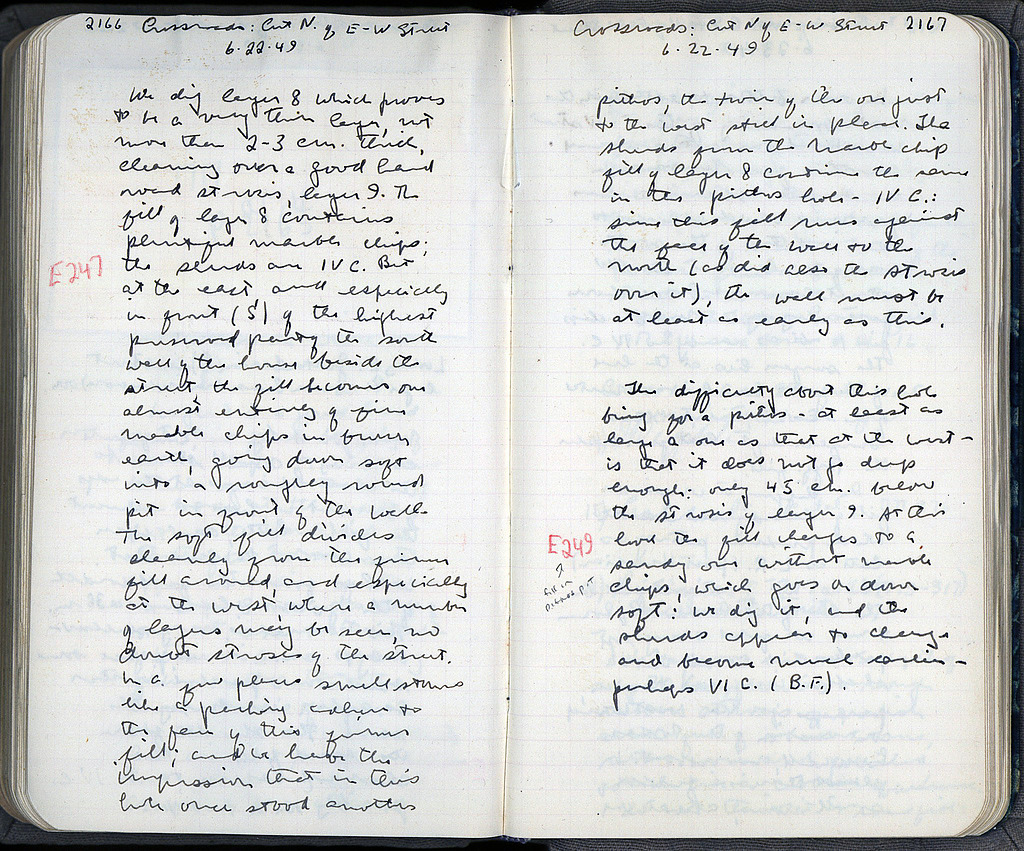 2166 Crossroads: Cut N. of E-W Street
6-22-49
We dig layer 8 which proves
to be a very thin layer, not
more than 2-3 cm. thick,
cleaning over a good hard
road strosis, layer 9. The
fill of layer 8 contains
plentiful marble chips;
E247
the sherds are IV C. But
at the east, and especially
in front (S) of the highest
preserved part of the south
wall of the house beside the
street the fill becomes one
almost entirely of fine
marble chips in brown
earth, going down soft
into a roughly round
pit in front of the wall.
The soft fill divides
cleanly from the firmer
fill around, and especially
at the west, where a number
of layers may be seen, no
doubt stroses of the street.
In a few places small stones
like a packing adhere to
the face of this firmer
fill; and we have the
impression that in this
hole once stood another
Crossroads: Cut N of E-W Street 2167
6-22-49
pithos, the twin of the one just
to the west still in place. The
sherds from the marble chip
fill of layer 8 continue the same
in the pithos hole - IV C.:
since this fill runs against
the face of the wall to the
north (as did also the strosis
over it), the wall must be
at least as early as this.
The difficulty about this hole
being for a pithos - at least as
large a one as that at the west -
is that it does not go deep
enough: only 45 cm. below
the strosis of layer 9. At this
E249
level the fill changes to a
sandy one without marble
fill in
pit
chips, which goes on down
soft: we dig it, and the
sherds appear to change
and become much earlier -
perhaps VI C. (B.F.).